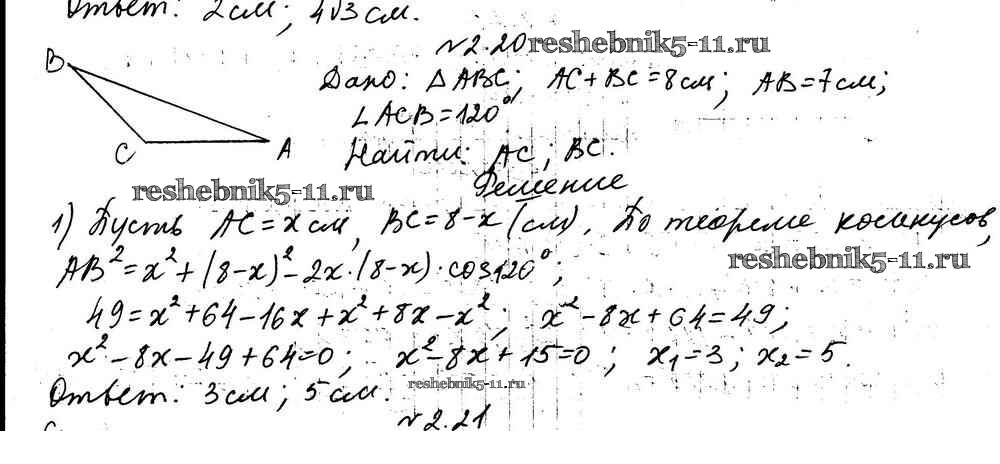 Ответ: 2 см; 4√3 см.
№2.20 reshebnik5-11.ru
B
Дано: △ABC; AC+BC=8 см; AB=7 см;
∠ACB=120°
C A Найти: AC; BC.
reshebnik5-11.ru Решение
1) Пусть AC=x см, BC=8-x (см). По теореме косинусов,
AB²=x²+(8-x)²-2x·(8-x)·cos120°;
reshebnik5-11.ru
49=x²+64-16x+x²+8x-x²; x²-8x+64=49;
x²-8x-49+64=0; x²-8x+15=0; x₁=3; x₂=5.
reshebnik5-11.ru
Ответ: 3 см; 5 см.
№2.21